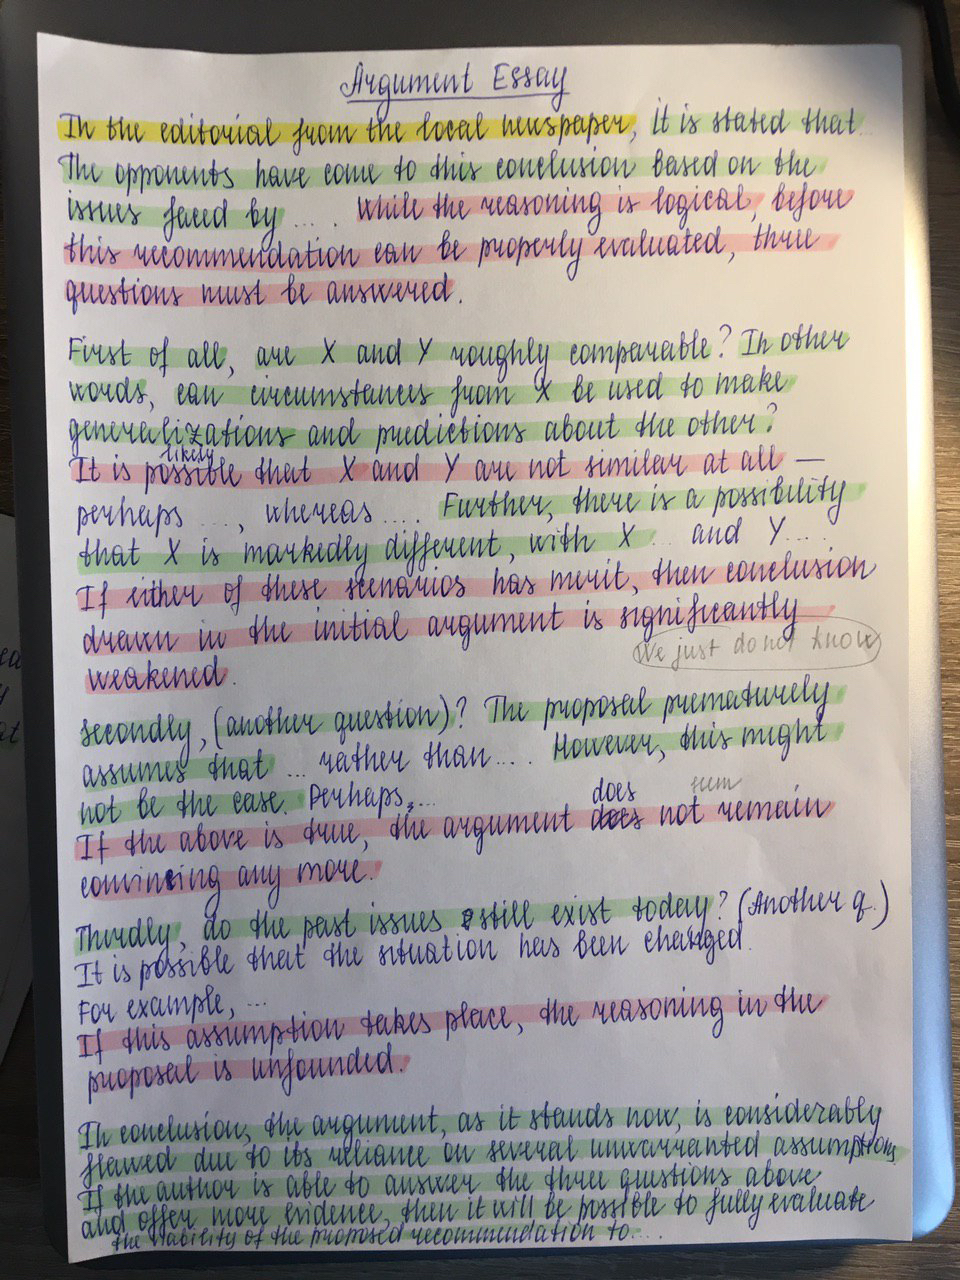 Argument Essay
In the editorial from the local newspaper, it is stated that...
The opponents have come to this conclusion based on the
issues faced by .... While the reasoning is logical, before
this recommendation can be properly evaluated, three
questions must be answered.
First of all, are X and Y roughly comparable? In other
words, can circumstances from X be used to make
generalizations and predictions about the other?
likely
It is possible that X and Y are not similar at all —
perhaps ..., whereas .... Further, there is a possibility
that X is markedly different, with X ... and Y....
If either of these scenarios has merit, then conclusion
drawn in the initial argument is significantly
We just do not know
weakened.
Secondly, (another question)? The proposal prematurely
assumes that ... rather than.... However, this might
not be the case. Perhaps,...
does
If the above is true, the argument does not remain
convincing any more.
Thirdly, do the past issues still exist today? (Another q.)
It is possible that the situation has been changed.
For example, ...
If this assumption takes place, the reasoning in the
proposal is unfounded.
In conclusion, the argument, as it stands now, is considerably
flawed due to its reliance on several unwarranted assumptions
If the author is able to answer the three questions above
and offer more evidence, then it will be possible to fully evaluate
the viability of the proposed recommendation to....